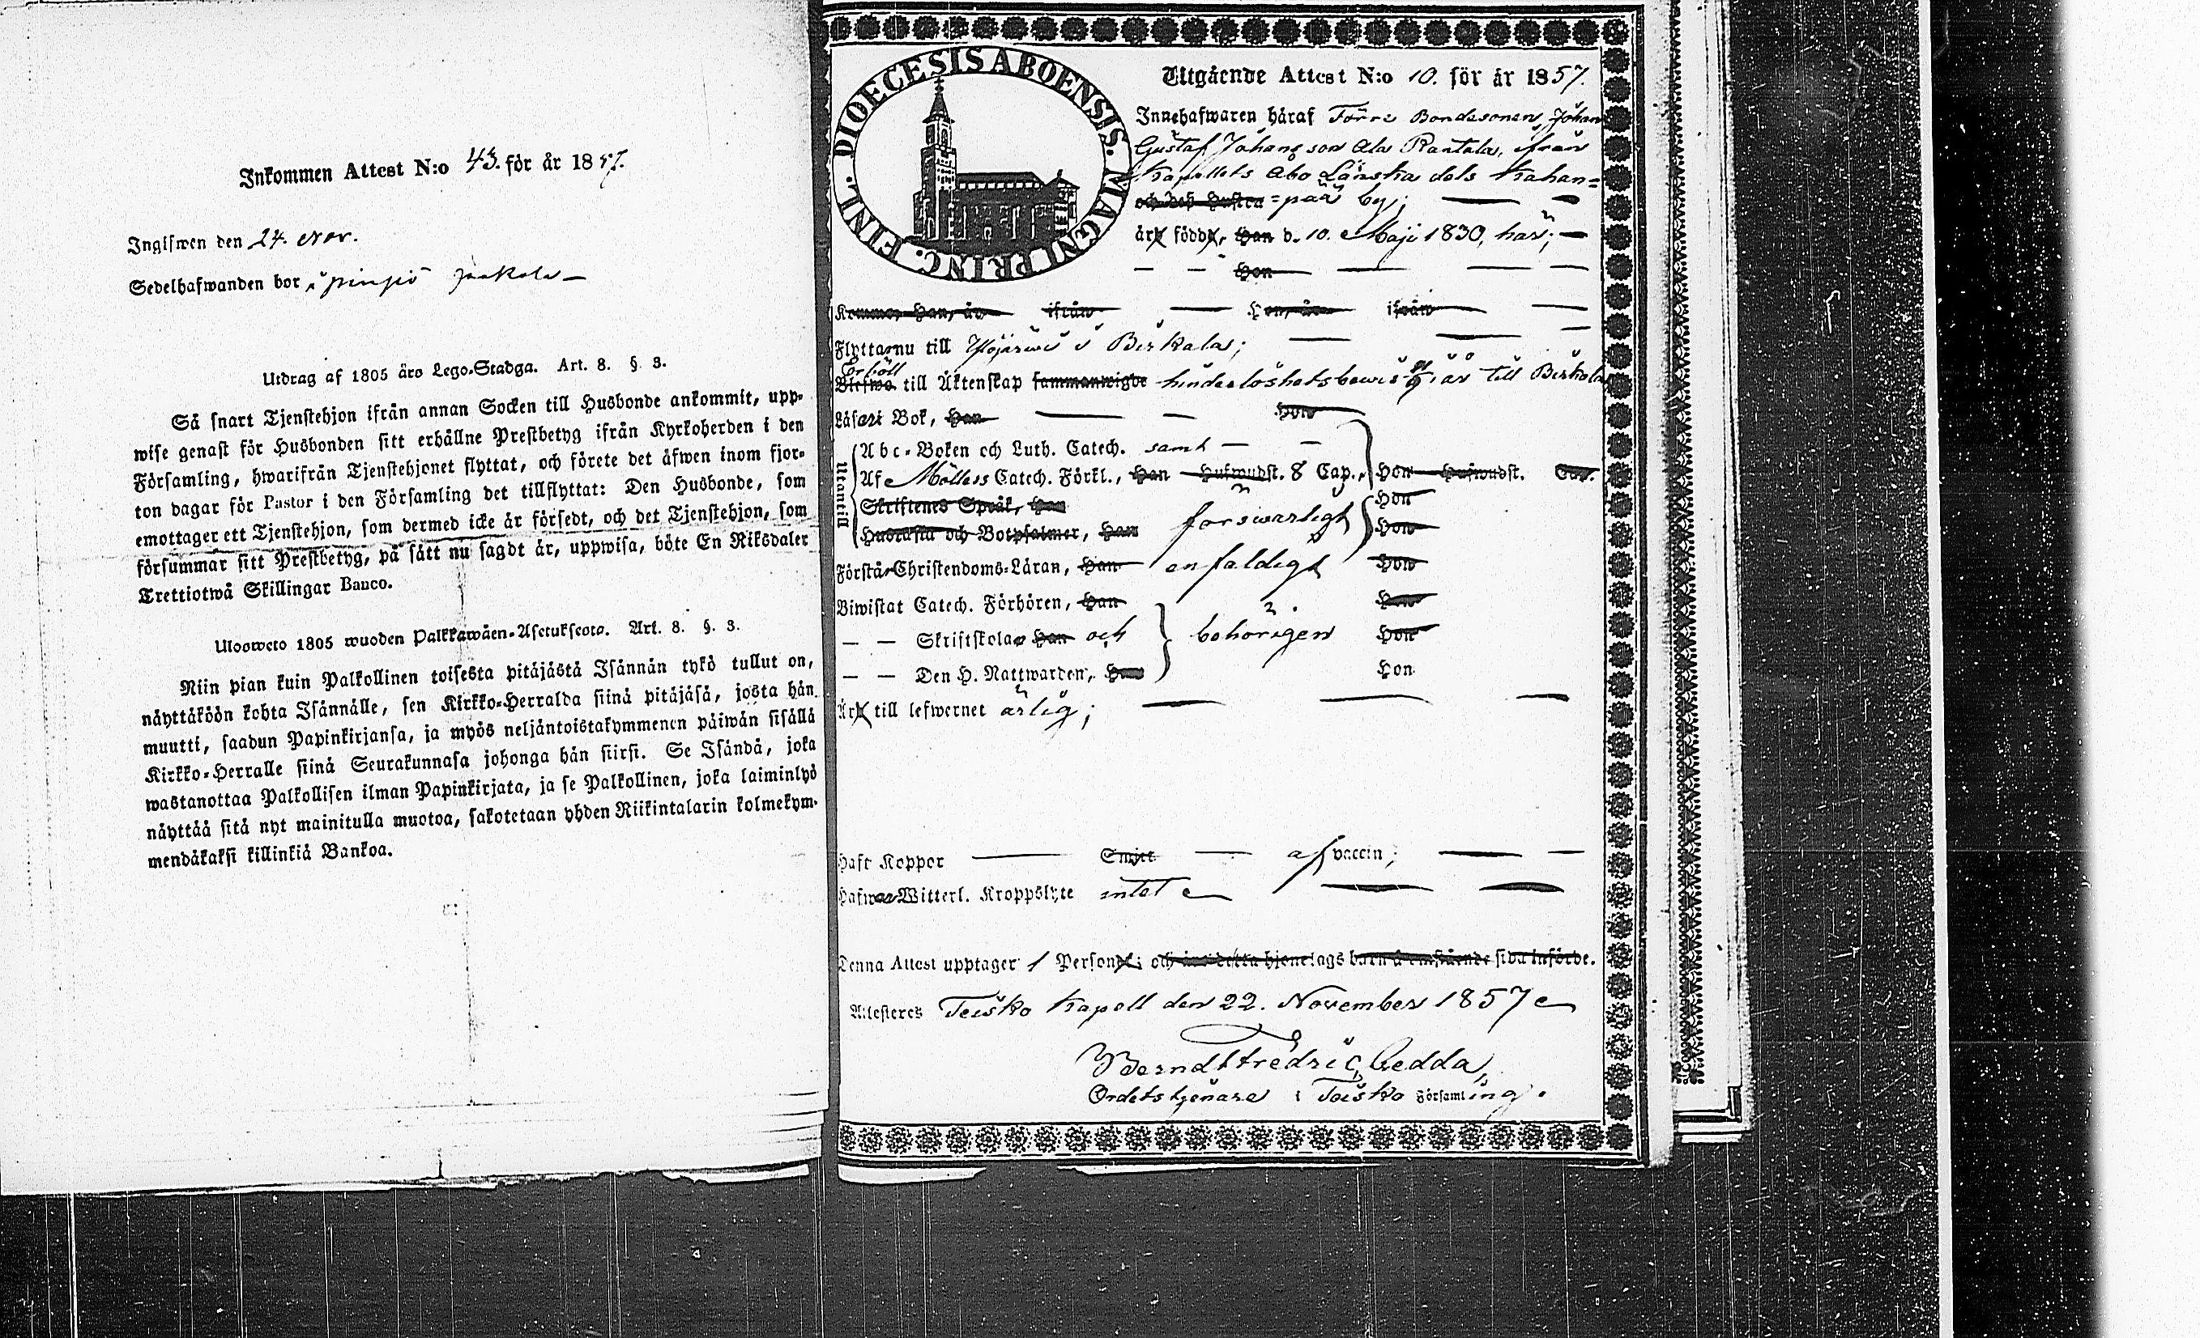 Inkommen Attest N:o 43. för år 1857.
Ingifwen den 24. Nov.
Sedelhafwanden bor i
Utdrag af 1805 års Lego-Stadga. Art. 8. §. 3.
Så snart Tjenstehjon ifrån annan Socken till Husbonde ankommit, upp-
wise genast för Husbonden sitt erhållne Prestbetyg ifrån Kyrkoherden i den
Församling, hwarifrån Tjenstehjonet flyttat, och förete det äfwen inom fjor-
ton dagar för Pastor i den Församling det tillflyttat: Den Husbonde, som
emottager ett Tjenstehjon, som dermed icke är försedt, och det Tjenstehjon, som
försummar sitt Prestbetyg, på sätt nu sagdt är, uppwisa, böte En Riksdaler
Trettiotwå Skillingar Banco.
Ulosweto 1805 wuoden Palkkawäen-Asetuksesta. Art. 8. §. 3.
Niin pian kuin Palkollinen toisesta pitäjästä Isännän tykö tullut on,
näyttäköön kohta Isännälle, sen Kirkko-Herralda siinä pitäjäsä, josta hän
muutti, saadun Papinkirjansa, ja myös neljäntoistakymmenen päiwän sisällä
Kirkko-Herralle siinä Seurakunnasa johonga hän siirsi. Se Isändä, joka
wastanottaa Palkollisen ilman Papinkirjata, ja se Palkollinen, joka laiminlyö
näyttää sitä nyt mainitulla muotoa, sakotetaan yhden Riikintalarin kolmekym-
mendäkaksi killinkiä Bankoa.
DIOECESIS ABOENSIS. MAGNI PRINC. FINL.
Utgående Attest N:o 10. för år 1857.
Innehafwaren häraf Förre Bondesonen Johan
Gustaf Johansson Ala Rantala, ifrån
Kapellets Åbo Länska dels Kahan=
och des hustru =pää by;
är född, Han d. 10. Maji 1830, här;
Hon
Kommo, Han, år ifrån Hon, år ifrån
Flyttar nu till Ylöjärwi i Birkala;
Erhöll
Blefwo till Äktenskap sammanwigde hinderlöshetsbewis i år till Birkala
Läser i Bok, Han Hon
Utantill
Abc-Boken och Luth. Catech. samt
Af Möllers Catech. Förkl., Han Hufwudst. 8 Cap., Hon Hufwudst. Cap.
Skriftenes Språk, Han Hon
Hustafla och Botpsalmer, Han förswarligt Hon
Förstår Christendoms-Läran, Han enfaldigt Hon
Biwistat Catech. Förhören, Han Hon
— — Skriftskolan Han och behörigen Hon
— — Den H. Nattwarden, Han Hon
Är till lefwernet ärlig;
Haft Koppor Smitt af vaccin;
Hafwer Witterl. Kroppslyte intet
Denna Attest upptager 1 Person; och äro detta hjonelags barn å omstående sida införde.
Attesteres Teisko Kapell den 22. November 1857
Berndt Fredric Gedda,
Ordets tjenare i Teisko Församling.